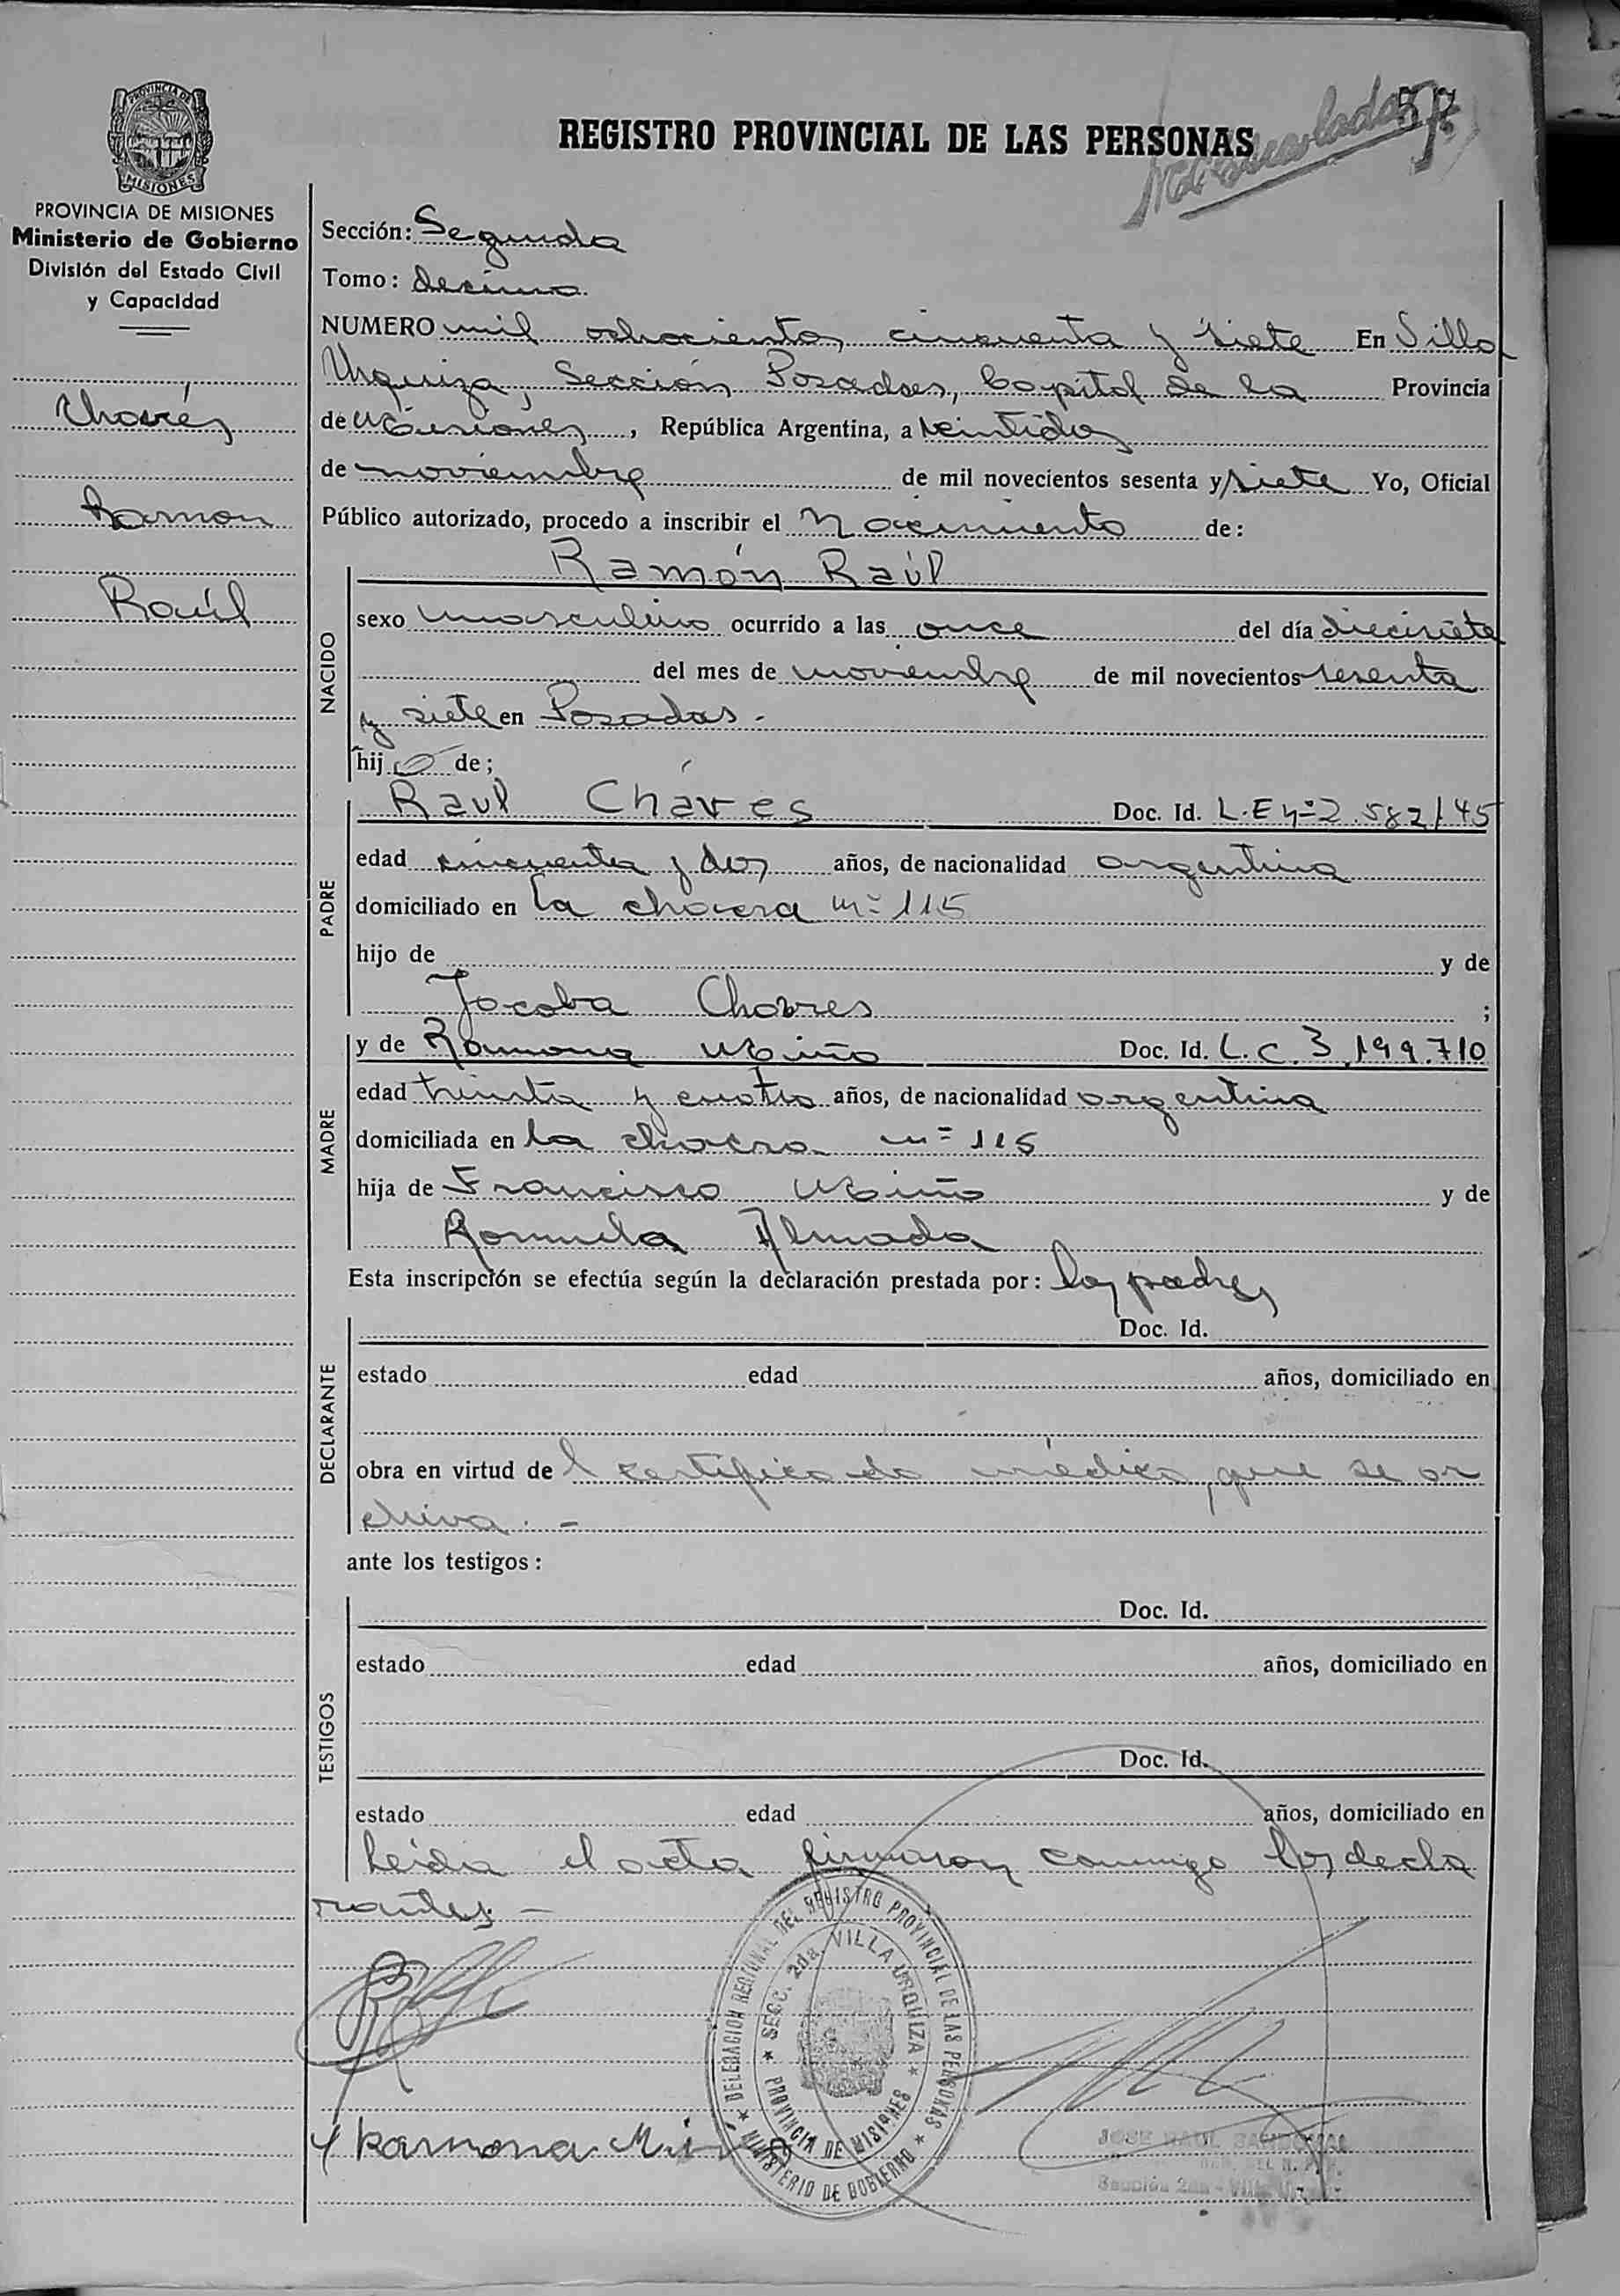 PROVINCIA DE MISIONES
PROVINCIA DE MISIONES
Ministerio de Gobierno
División del Estado Civil
y Capacidad
Chavés
Ramon
Raúl
REGISTRO PROVINCIAL DE LAS PERSONAS
57
Sección: Segunda
Tomo: decimo
NUMERO mil ochocientos cincuenta y siete En Villa
Urquiza, Sección Posadas, Capital de la Provincia
de Misiones, República Argentina, a veintidos
de noviembre de mil novecientos sesenta y siete Yo, Oficial
Público autorizado, procedo a inscribir el Nacimiento de:
Ramón Raúl
NACIDO
sexo masculino ocurrido a las once del día diecisiete
del mes de noviembre de mil novecientos sesenta
y siete en Posadas.-
hijo de;
PADRE
Raul Cháves Doc. Id. L.E nº 2.582145
edad cincuenta y dos años, de nacionalidad argentina
domiciliado en la chacra nº 115
hijo de y de
Jacoba Chaves ;
MADRE
y de Ramona Miño Doc. Id. L.C. 3.199.710
edad treinta y cuatro años, de nacionalidad argentina
domiciliada en la chacra nº 115
hija de Francisco Miño y de
Romula Almada
Esta inscripción se efectúa según la declaración prestada por: los padres
DECLARANTE
Doc. Id.
estado edad años, domiciliado en
obra en virtud del certificado médico, que se ar
chiva.-
ante los testigos:
TESTIGOS
Doc. Id.
estado edad años, domiciliado en
Doc. Id.
estado edad años, domiciliado en
Leida el acta firmaron conmigo los decla
rantes.-
DELEGACION REGIONAL DEL REGISTRO PROVINCIAL DE LAS PERSONAS
MINISTERIO DE GOBIERNO
SECC. 2da. VILLA URQUIZA
PROVINCIA DE MISIONES
Ramona Miño
JOSE RAUL
Sección 2da - Villa Urquiza